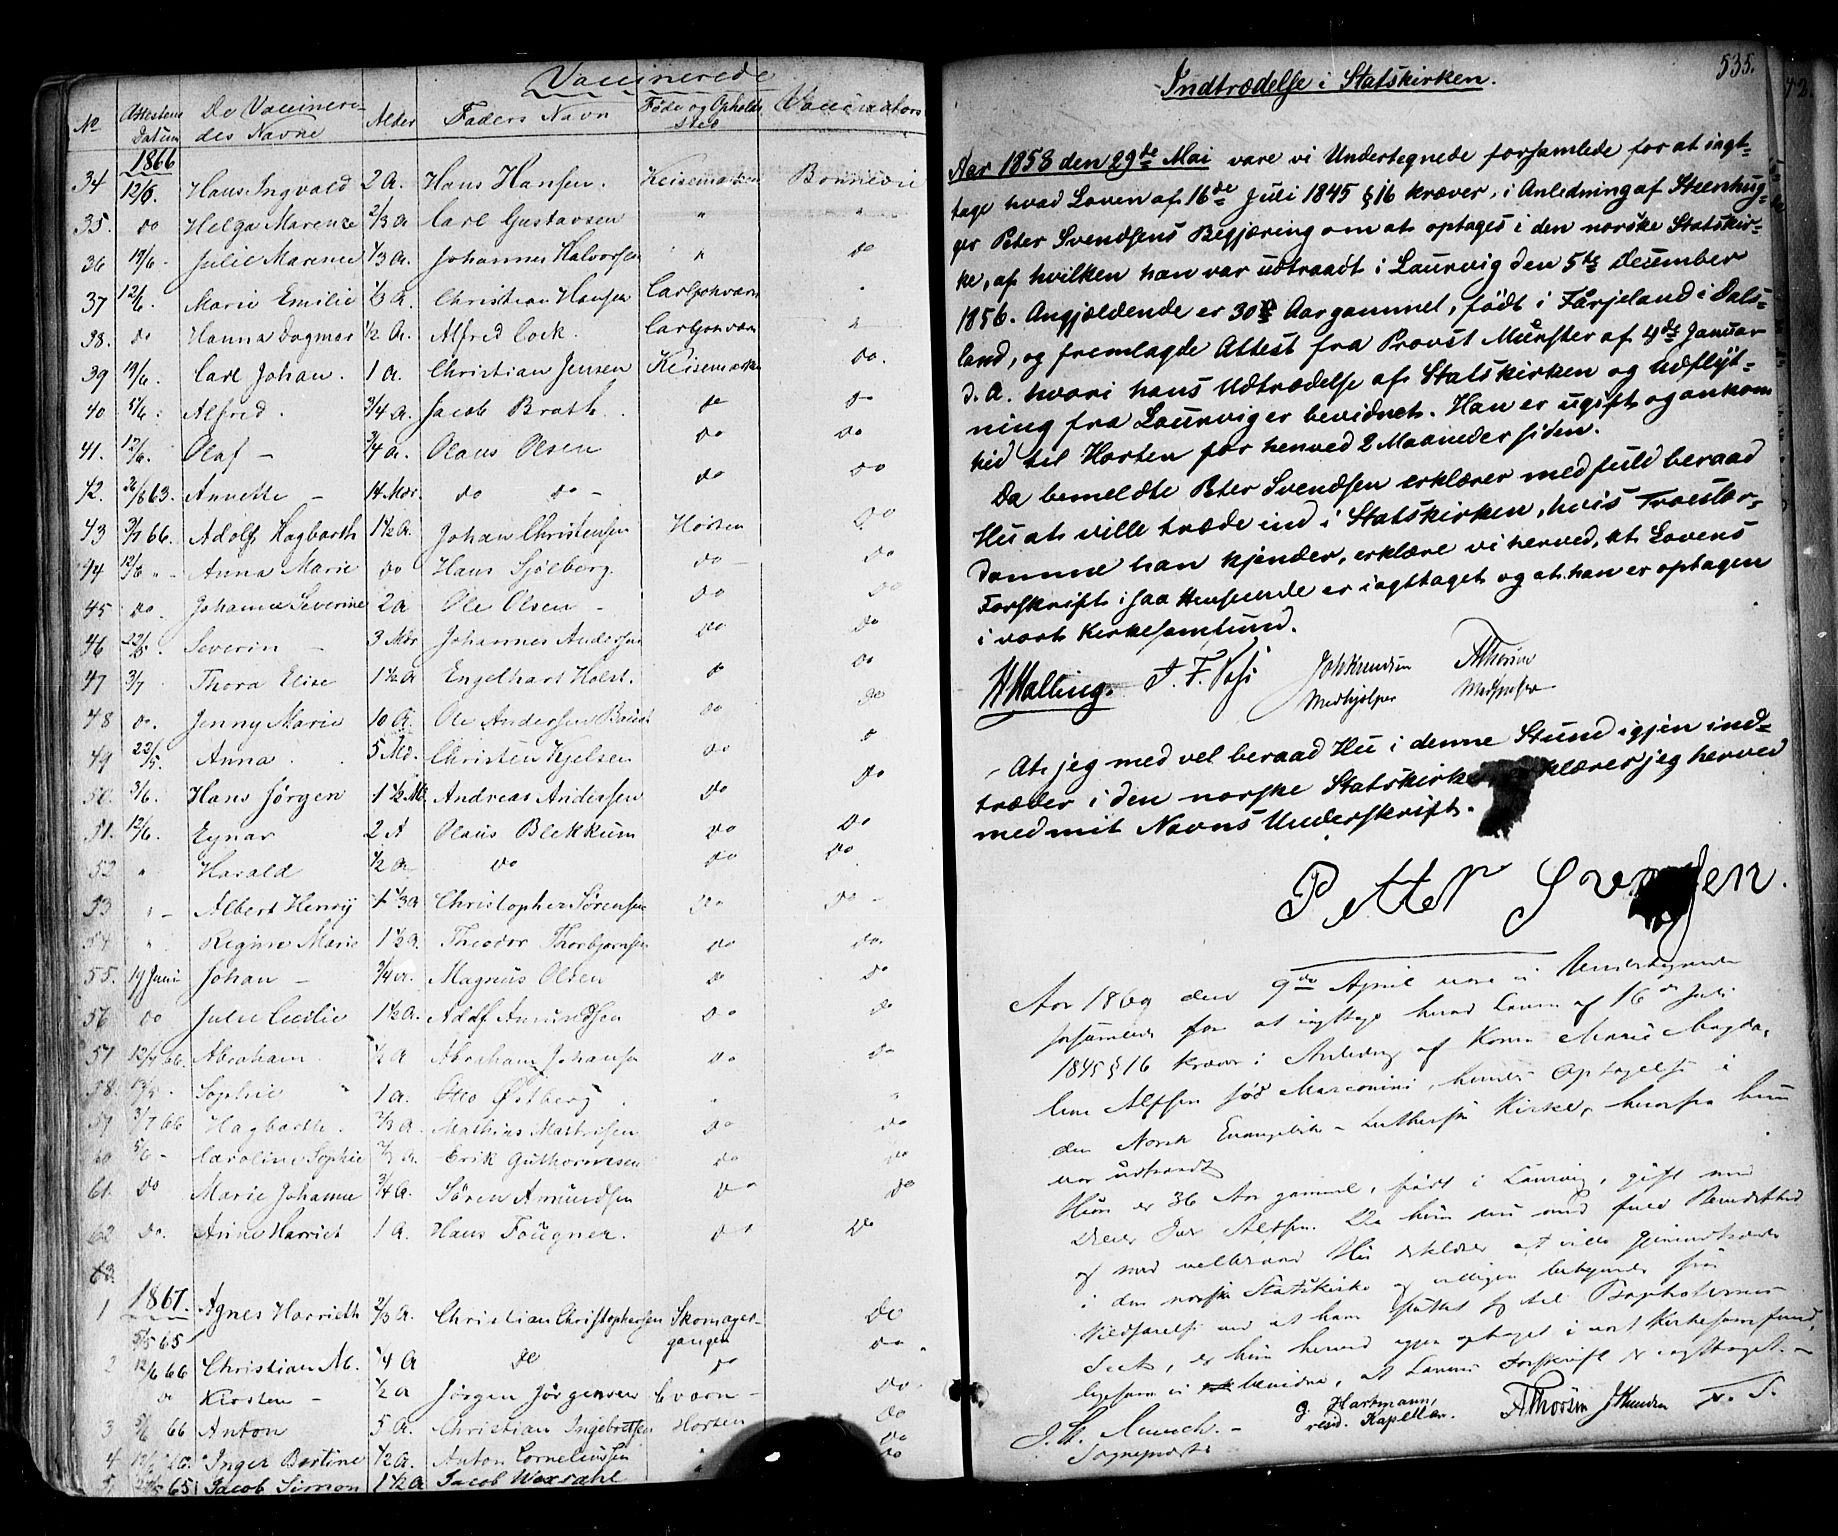 Vaccinerede
No
Attestens Datum
De Vaccinere-
des Navne
Alder
Faders Navn
Føde og Opholds
Sted
Vaccinators
1866
34 12/6. Hans Ingvald 2 A. Hans Hansen. Keisemarken Bonnevie
35. do Helga Marense 2/3 A Carl Gustavsen " "
36 19/6 - Julie Marense 1/3 A. Johannes Halvorsen " do
37 12/6. Marie Emilie 1/3 A. Christian Hansen Carljohnværn "
38. do Hanna Dagmar 1/2 A. Alfred Cock. Carljohnværn "
39 19/6. Carl Johan. 1 A. Christian Jensen Keisemarken do.
40 5/6. Alfred. 3/4 A. Jacob Brath. do do
41. 12/6. Olaf - 3/4 A. Olaus Olsen do do
42. 26/6 63. Annette - 14 Mdr. do do - do do
43 3/7 66. Adolf Hagbarth 1 1/2 A. Johan Christensen Horten do
44 12/6 " - Anna Marie do Hans Sjölberg. do - do
45 do. Johanne Severine 2 A Ole Olsen - do do
46 22/5. Severin - 3 Mdr Johannes Andersen do do
47 3/7 Thora Elise 1 1/2 A Engelhart Holst. do do
48 do. Jenny Marie 10 A. Ole Andersen do do
49 22/5. Anna. 5 Md. Christen Kjelsen do do
50. 3/6. Hans Jørgen 1 1/2 Md Andreas Andersen do do
51. 12/6. Eynar 2 A Olaus Blekkum do do
52 " Harald 1/2 A. do do do
53 " - Albert Henry 1 1/3 A Christopher Sörensen do do -
54 " Regine Marie 1 1/2 A. Theodor Thorbjørnsen do do.
55. 19 Juni Johan - 3/4 A. Magnus Olsen do do
56 do Julie Cecilie 1 1/2 A. Adolf Amundsen do do
57 12/7 66. Abraham 1/2 A Abraham Johansen do do
58. Sophie " 1 A. Otto Østberg. " "
59 3/7 66 Hagbarth. 2/3 A. Mathias do do
60 5/6 - Caroline Sophie 2/3 A. Erik Guthormsen do do
61. do Marie Johanne 3/4 A. Sören Amundsen do do
62 do. Anne Harriet 1 A. Hans Fougner. do do
63
1867.
1 5/5 65 Agnes Harrieth 2/3 A. Christian Christophersen Skomager-
gangen do
2 12/6 66 Christian M. 1/4 A do do do "
do Kirsten - 1/2 A Jørgen Jørgensen Cværn - do
3 5/6 66 Anton 5 A. Christian Ingebretsen Horten do
4 Inger Bertine 1/2 A. Anton Corneliussen " do
5 65 Jacob Simon 1 1/2 A Jacob Woxdahl " do
535.
Indtrædelse i Statskirken.
Aar 1858 den 29de Mai vare vi Undertegnede forsamlede for at iagt-
tage hvad Loven af 16de Juli 1845 § 16 kræver, i Anledning af Steenhug-
ger Peter Svendsens Begjæring om at optages i den norske Statskir-
ke, af hvilken han var udtraadt i Laurvig den 5te December
1856. Angjældende er 30 Aar gammel, født i Färjeland i Dals-
land, og fremlagde Attest fra Provst Münster af 4de Januar
d. A. hvori hans Udtrædelse af Statskirken og Udflyt-
ning fra Laurvig er bevidnet. Han er ugift og ankom
hid til Horten for henved 2 Maaneder siden.
Da bemeldte Peter Svendsen erklærer med fuld beraad
Hu at ville træde ind i Statskirken, hvis Troeslær-
domme han kjender, erklære vi herved, at Lovens
Forskrift i saa Henseende er iagttaget og at han er optagen
i vort Kirkesamfund.
H Halling. J. F. Joh Knudsen A Thorsen
Medhjelper Medhjelper
At jeg med vel beraad Hu i denne Stund igjen ind-
træder i den norske Statskirke, erklærer jeg herved
med mit Navns Underskrift.
Petter Svendsen.
Aar 1869 den 9de April vare vi Undertegnede
forsamlede for at iagttage hvad Loven af 16de Juli
1845 § 16 kræver i Anledning af Konen Marie Magda-
lene Alfsen fød Marconini, hendes Optagelse i
den Norsk Evangelisk-Lutherske Kirke, hvorfra hun
var udtraadt
Hun er 36 Aar gammel, født i Laurvig, gift med
Dreier Iver Alfsen. Da hun nu med fuld Bevidsthed
og med velberaad Hu erklærer at ville gjenindtræde
i den norske Statskirke og villigen bekjender sin
Vildfarelse ved at have sluttet sig til Baptisternes
Sect, er hun herved igjen optaget i vort Kirkesamfund,
ligesom vi bevidne, at Lovens Forskrift er iagttaget. -
J. St. Munch. -
Sognepræst
G. Hartmann,
resid. Kapellan.
A Thorsen J Knudsen